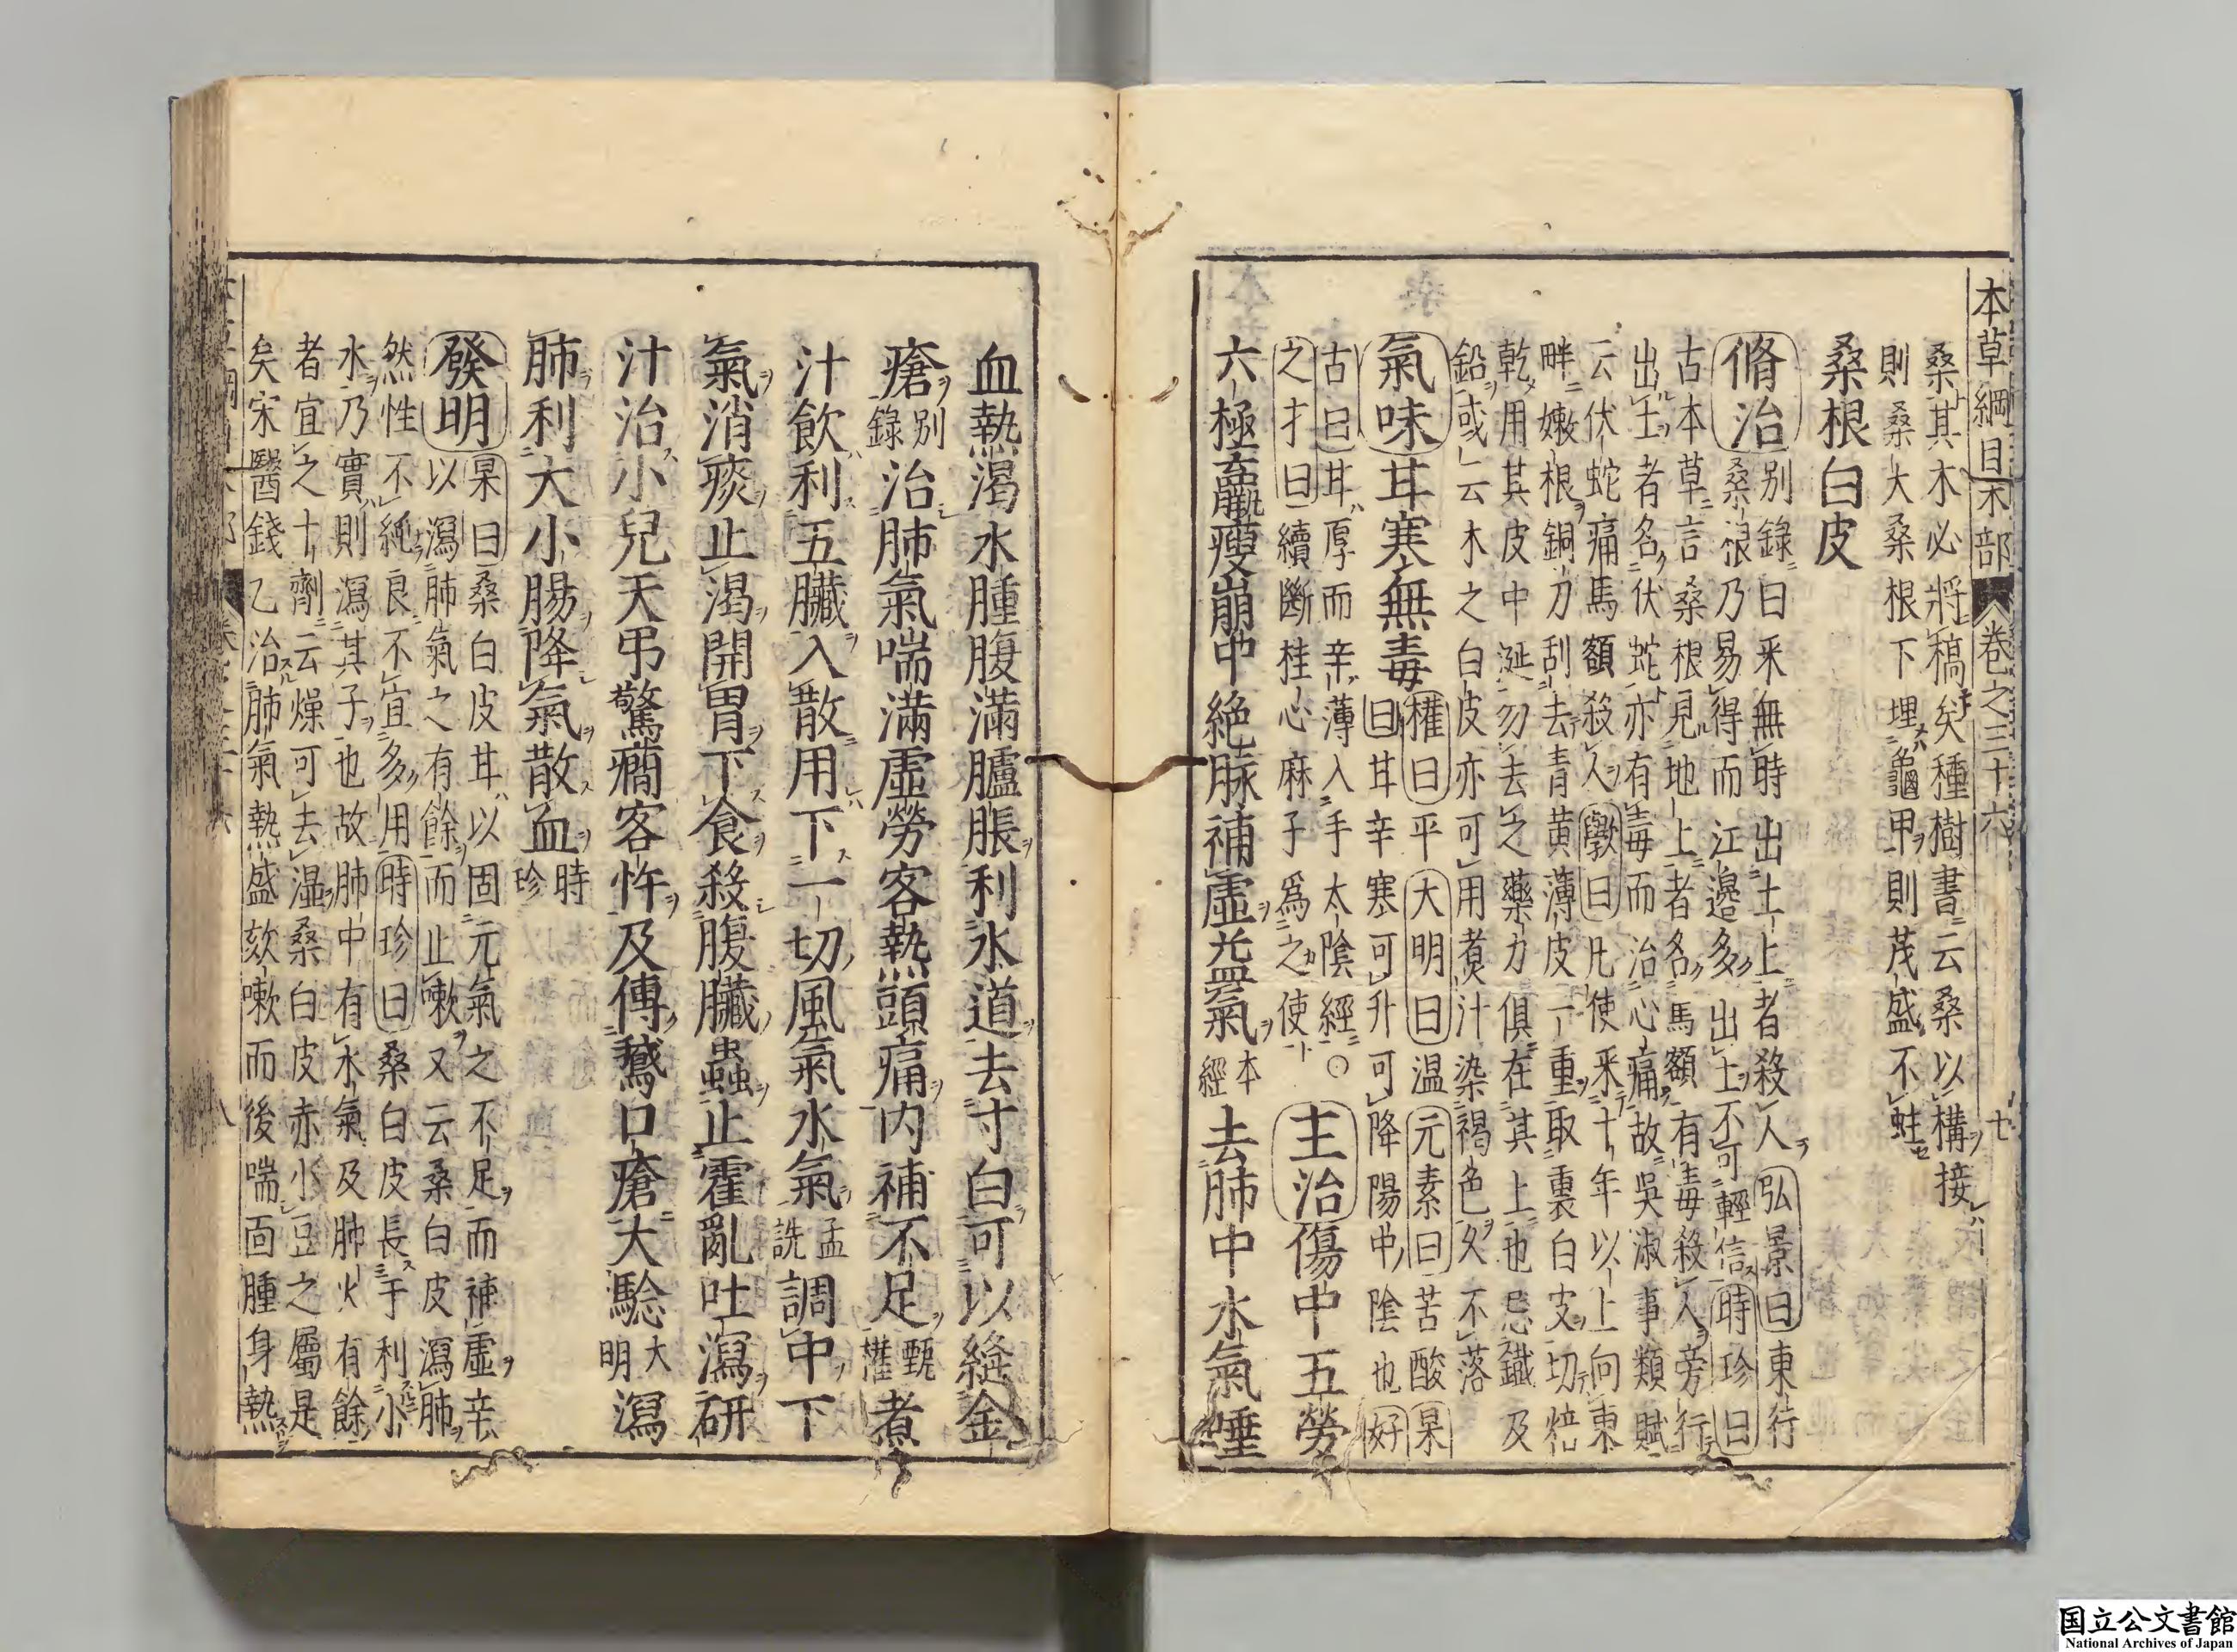 本草綱目木部 卷之三十六 七
桑其木必將稿矣種樹書云桑以構接
則桑大桑根下埋龜甲則茂盛不蛀
桑根白皮
脩治 別錄曰釆無時出土上者殺人 弘景曰 東行
桑根乃易得而江邊多出土不可輕信 時珍曰
古本草言桑根見地上者名馬額有毒殺人旁行
出土者名伏蛇亦有毒而治心痛故吳淑事類賦
云伏蛇痛馬額殺人 斆曰 凡使釆十年以上向東
畔嫩根銅刀刮去青黃薄皮一重取裏白皮切焙
乾用其皮中涎勿去之藥力俱在其上也忌鐵及
鉛或云木之白皮亦可用煑汁染褐色久不落
氣味 甘寒無毒 權曰 平 大明曰 温 元素曰 苦酸 杲
曰 甘辛寒可升可降陽中陰也 好
古曰 甘厚而辛薄入手太陰經○
之才曰 續斷桂心麻子爲之使
主治 傷中五勞
六極羸瘦崩中絶脉補虛益氣 本經 去肺中水氣唾
血熱渴水腫腹滿臚脹利水道去寸白可以縫金
瘡 別錄 治肺氣喘滿虛勞客熱頭痛内補不足 甄權 煮
汁飲利五臟入散用下一切風氣水氣 孟詵 調中下
氣消痰止渴開胃下食殺腹臟蟲止霍亂吐瀉研
汁治小兒天弔驚癇客忤及傅鵞口瘡大驗 大明 瀉
肺利大小腸降氣散血 時珍
發明 杲曰 桑白皮甘以固元氣之不足而補虛辛
以瀉肺氣之有餘而止嗽又云桑白皮瀉肺
然性不純良不宜多用 時珍曰 桑白皮長于利小
水乃實則瀉其子也故肺中有水氣及肺火有餘
者宜之十劑云燥可去濕桑白皮赤小豆之屬是
矣宋醫錢乙治肺氣熱盛欬嗽而後喘面腫身熱
国立公文書館
National Archives of Japan